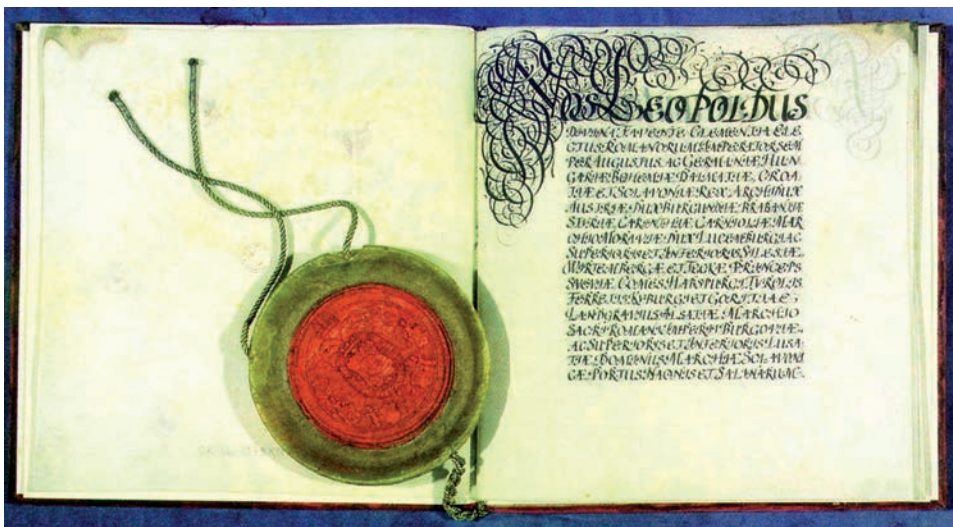 NOS LEOPOLDUS
DIVINA FAVENTE CLEMENTIA ELE
CTUS ROMANORUM IMPERATOR SEM
PER AUGUSTUS AC GERMANIÆ HUN
GARIÆ BOHEMIÆ DALMATIÆ CROA
TIÆ ET SCLAVONIÆ REX ARCHIDUX
AUSTRIÆ DUX BURGUNDIÆ BRABANTIÆ
STYRIÆ CARINTHIÆ CARNIOLIÆ MAR
CHIO MORAVIÆ DUX LUCEMBURGI AC
SUPERIORIS ET INFERIORIS SILESIÆ
WIRTEMBERGÆ ET TECKÆ PRINCEPS
SUEVIÆ COMES HABSPURGI TYROLIS
FERRETIS KYBURGI ET GORITIÆ
LANDGRAVIUS ALSATIÆ MARCHIO
SACRI ROMANI IMPERII BURGOVIÆ
AC SUPERIORIS ET INFERIORIS LUSA
TIÆ DOMINUS MARCHIÆ SCLAVONI
CÆ PORTUS NAONIS ET SALINARUM